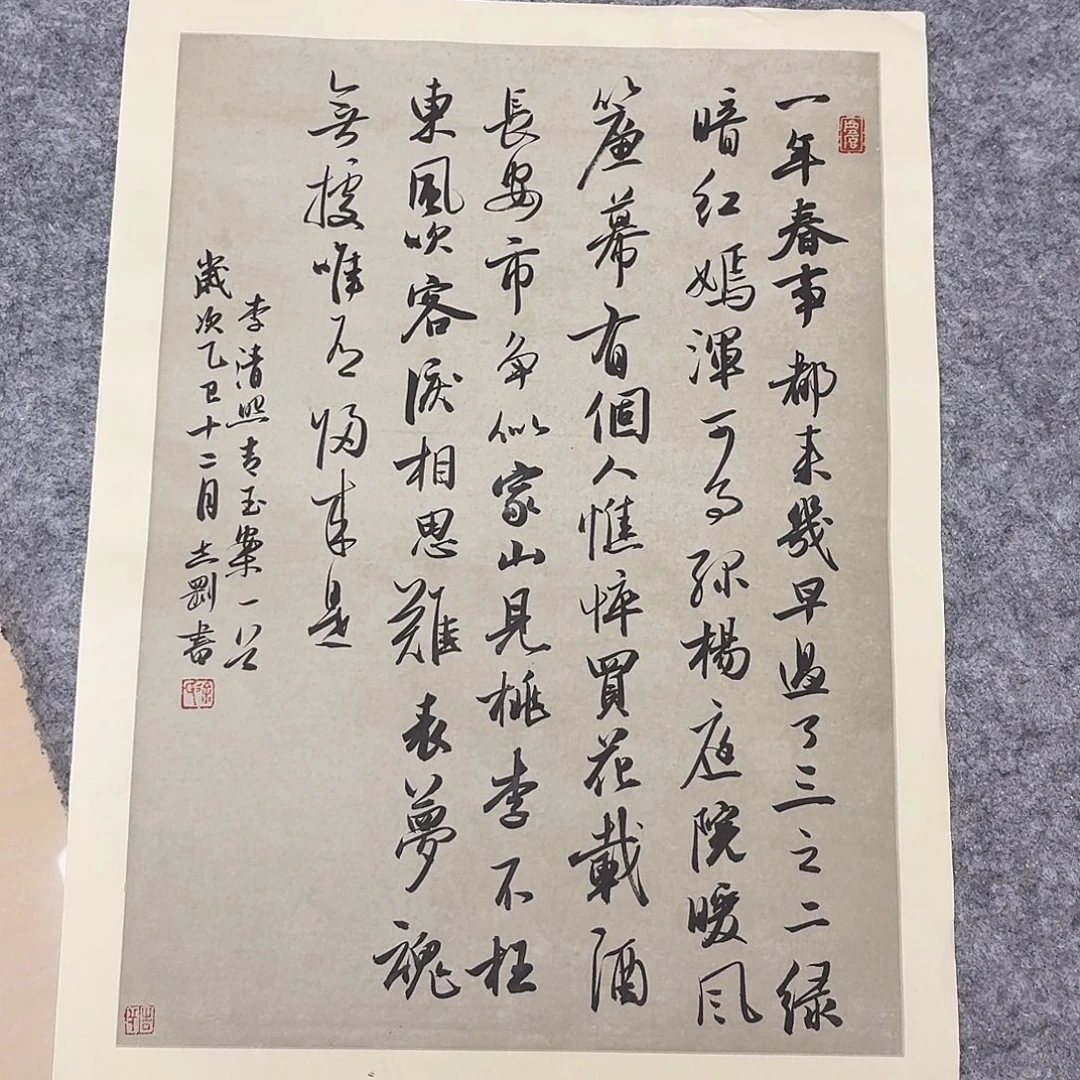 一年春事都来幾早過了三之二緑
暗红嫣渾可事緑楊庭院暖風
簾幕有個人憔悴買花載酒
長安市争似家山見桃李不枉
東風吹客淚相思難表夢魂
無據唯有歸来是
李清照青玉案一首
歲次乙巳十二月志剛書